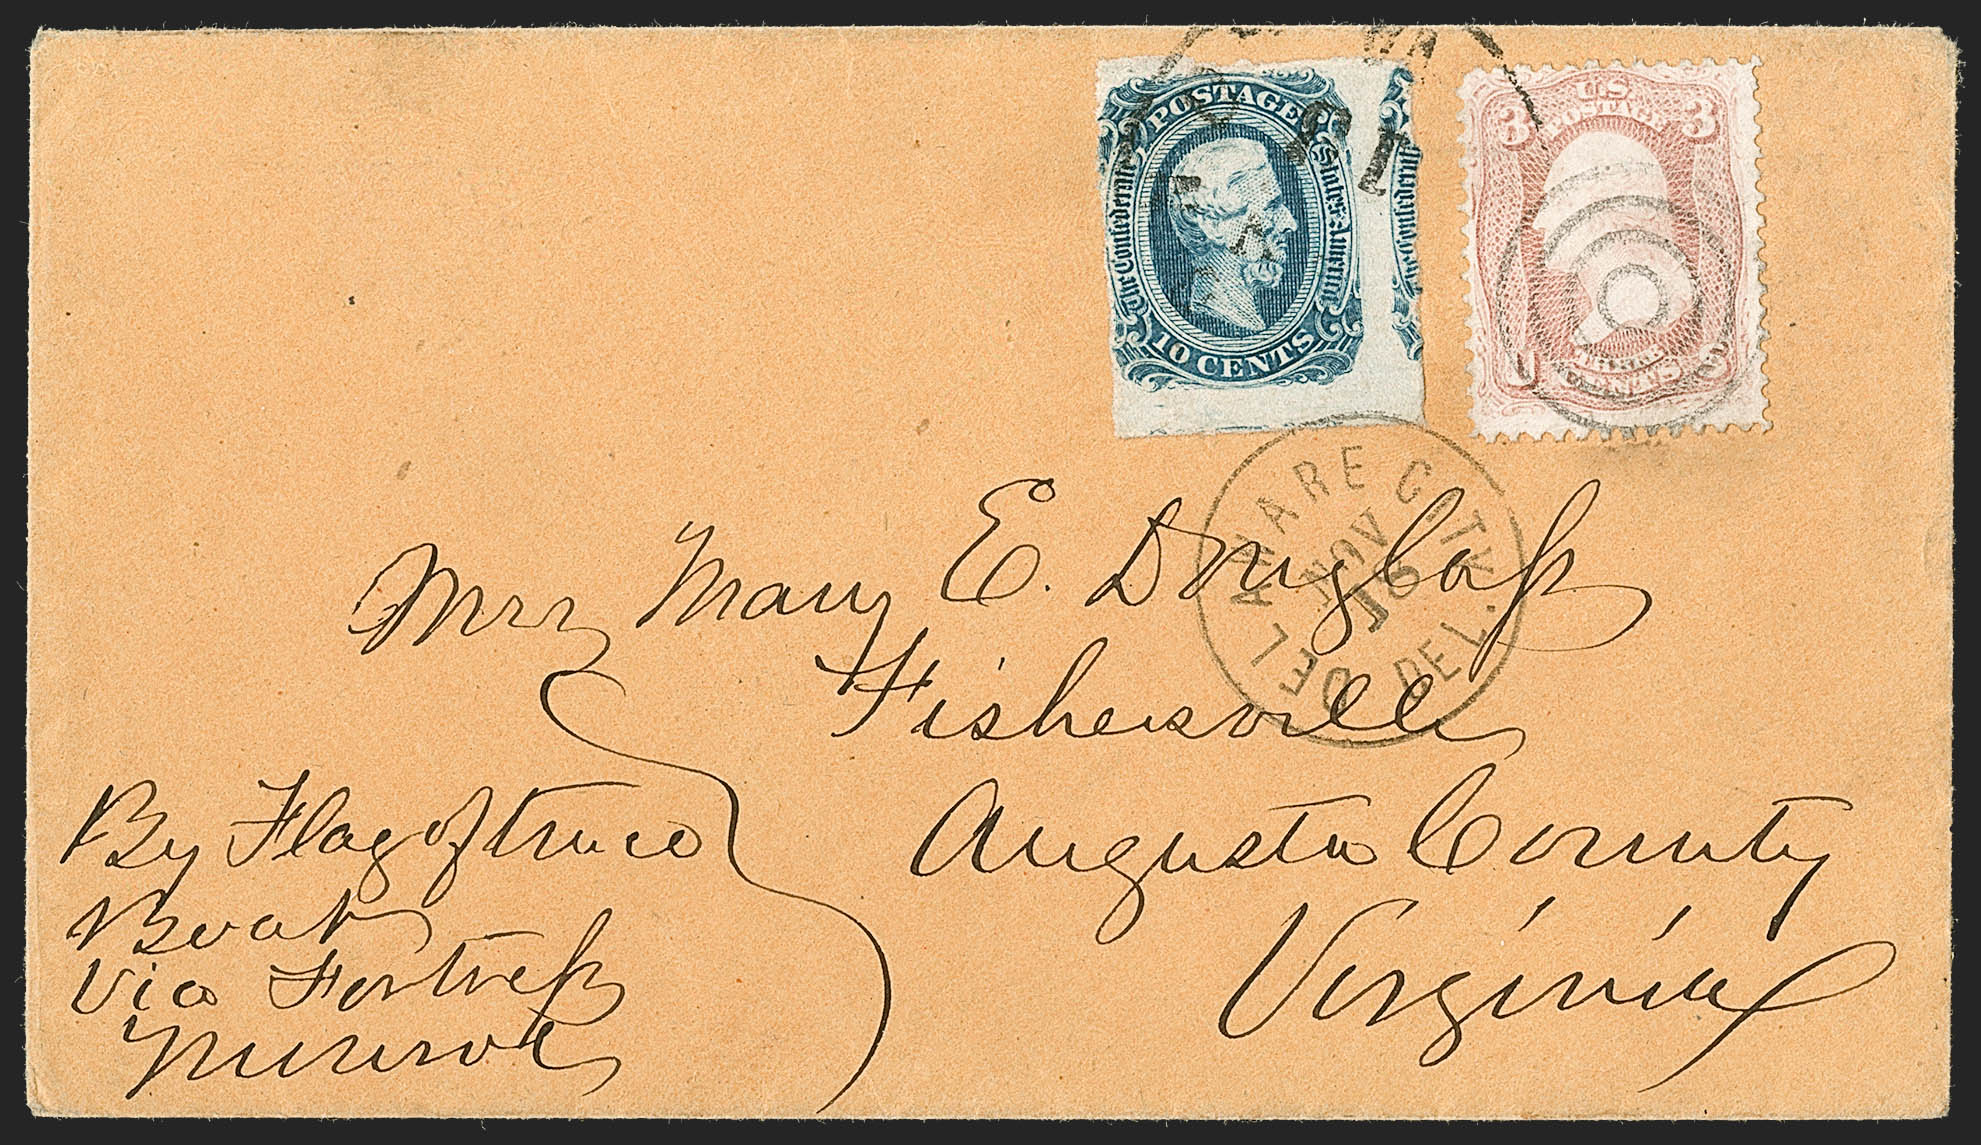 POSTAGE
The Confederate States of America
10 CENTS
U.S.
POSTAGE
3 3
U S
THREE
CENTS
DELAWARE CITY
NOV
16
DEL.
Mrs Mary E. Douglass
Fishersville
Augusta County
Virginia
By Flag of truce
Boat
Via Fortress
Munroe